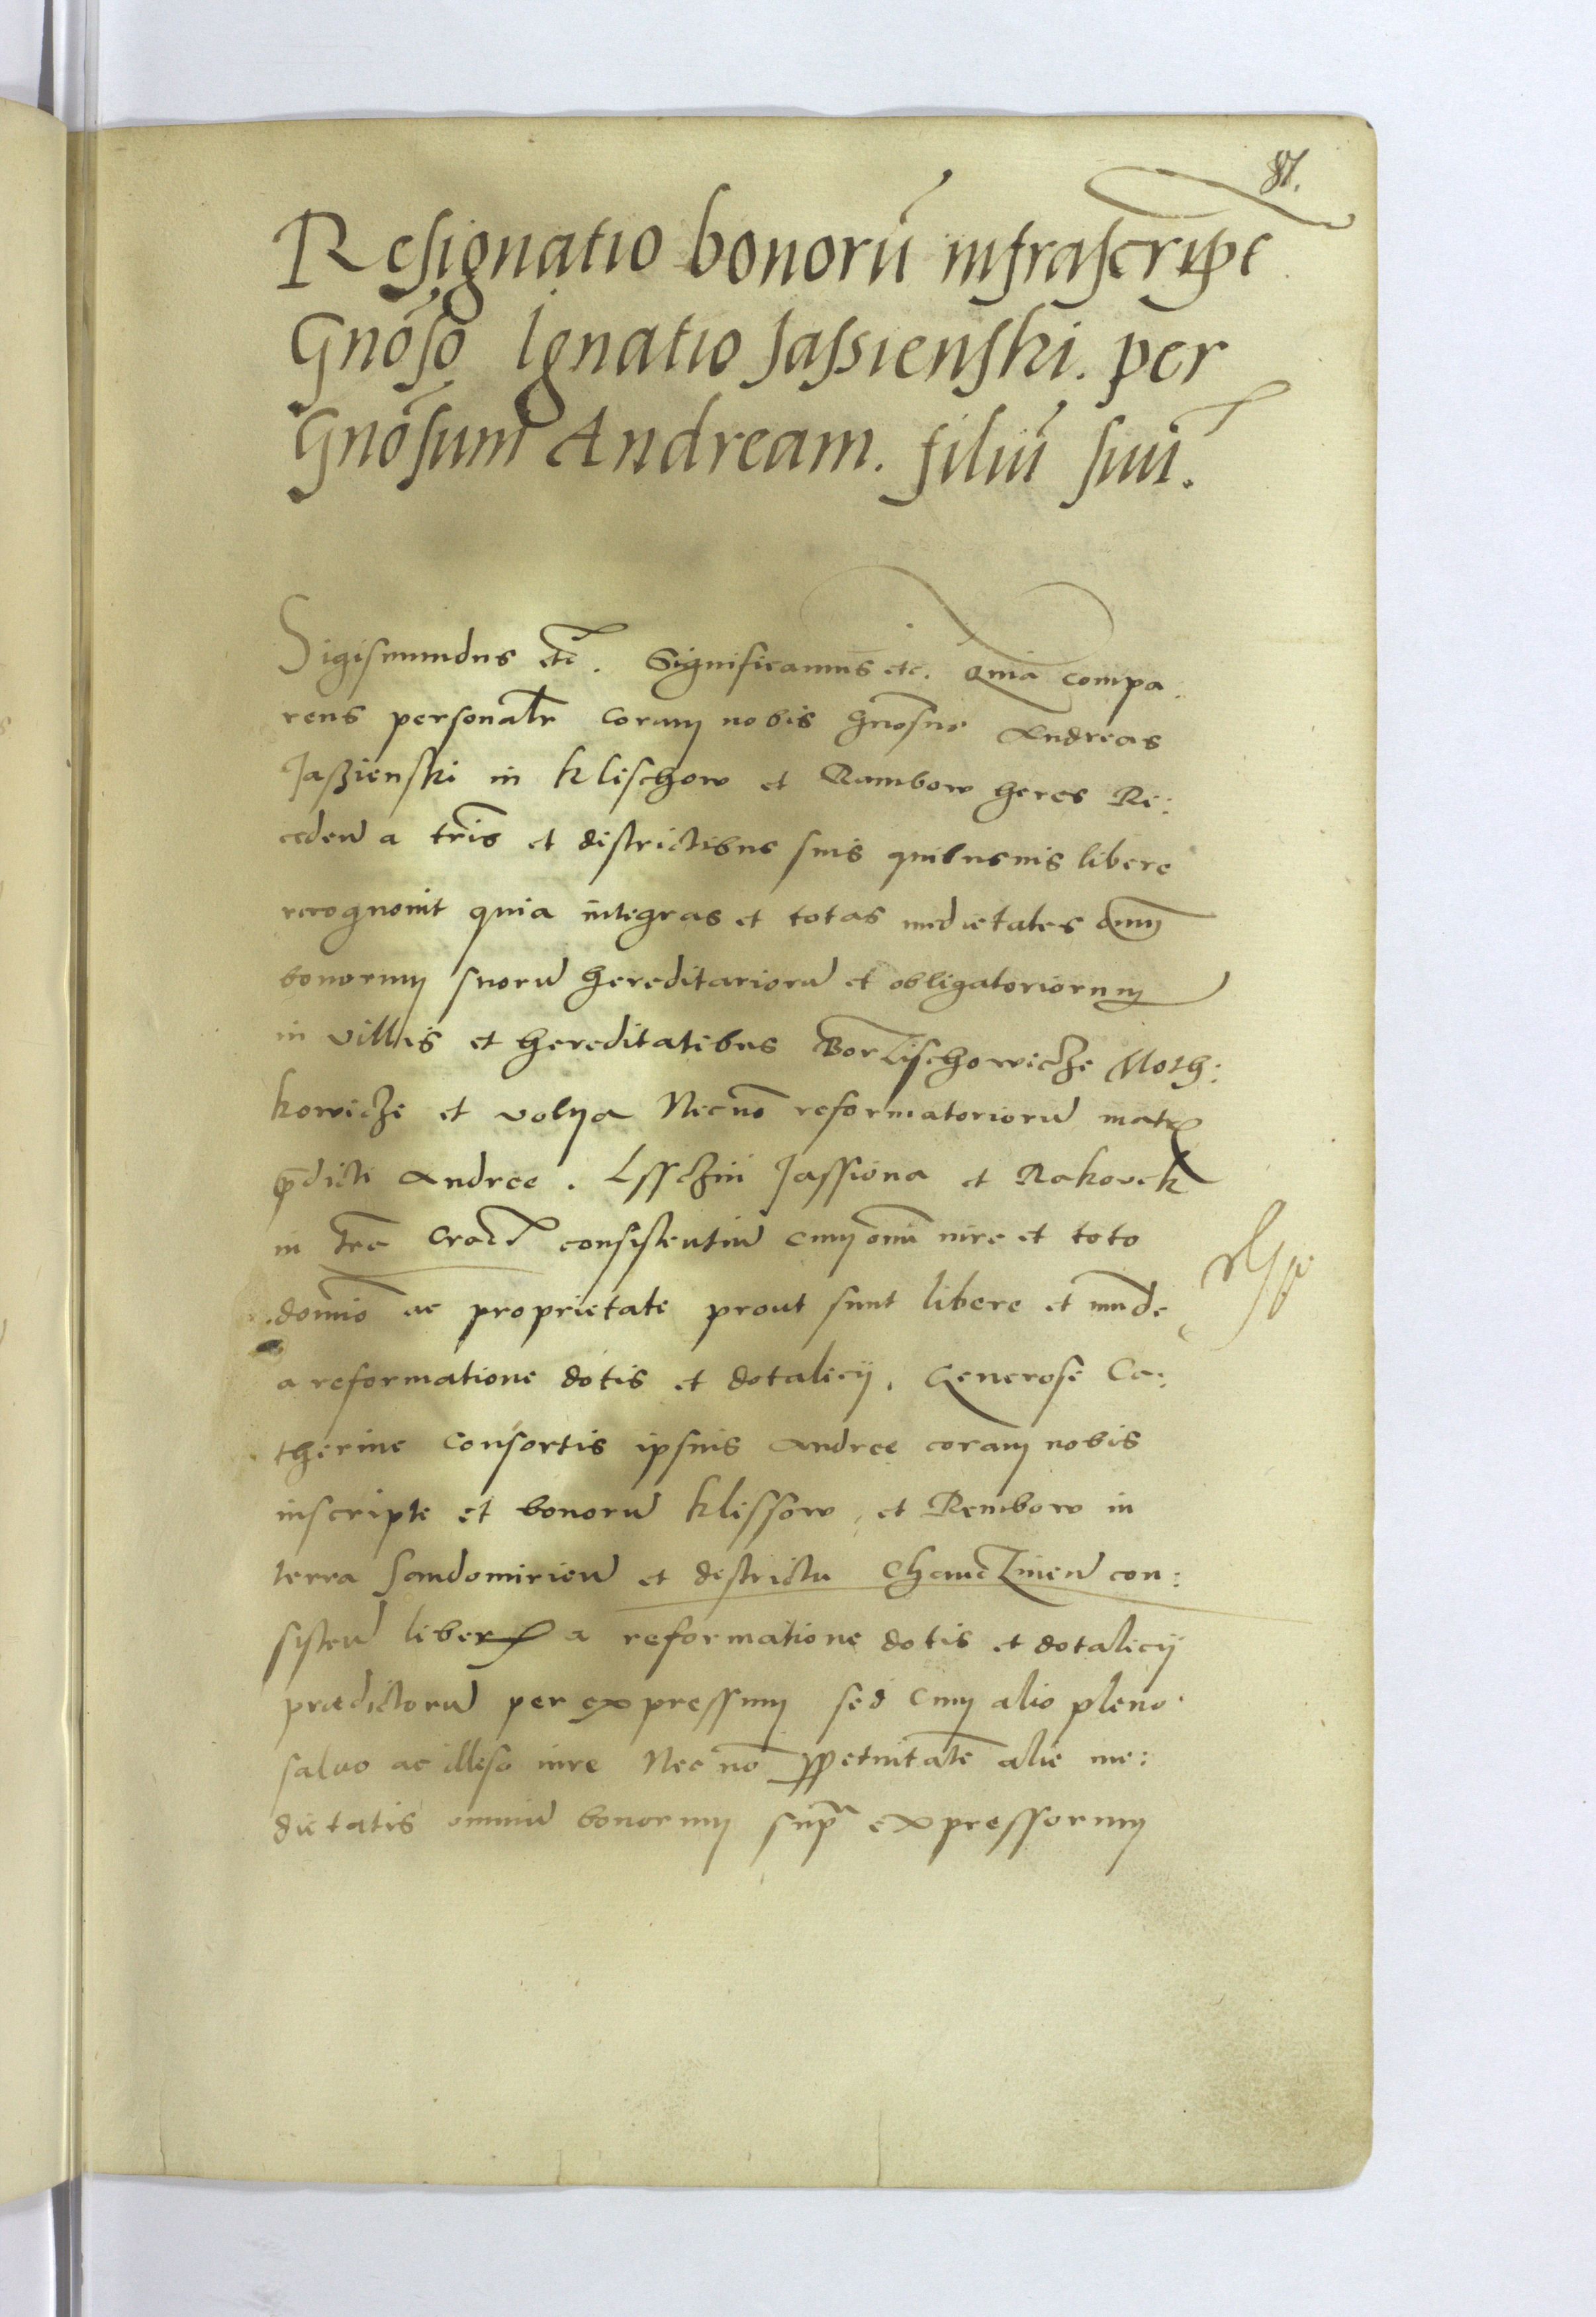 81.
Resignatio bonorū infrascript
Gnōso Ignatio Jassienski. per
Gnōsum Andream. filiū suū.
Sigismundus etc. Significamus etc. Quia compa
rens personalr coram nobis Gnosus Andreas
Jaszienski in Klischow et Rambow heres Re:
ceden a tris et districtibus suis quibusuis libere
recognouit quia integras et totas medietates omī
bonorum suorū hereditariorū et obligatoriorum
in villis et hereditatibus Borzischowicze Moth:
kowicze et volya Necnō reformatoriorū
p̄dicti Andree. Jassiona et Rakovek
in tre Crac consistentiū cum omī iure et toto
domīo ac proprietate prout sunt libere et munde
a reformatione dotis et dotalicij. Generose Ca:
therine consortis ipsius Andree coram nobis
inscripte et bonorū Klissow et Rembow in
terra Sandomirien et districtu Chanczinen con:
sisten liber a reformatione dotis et dotalicij
prædictorū per expressum sed cum alio pleno
saluo ac illeso iure Necnō ppetuitatē alie me:
dietatis omniū bonorum supra expressorum